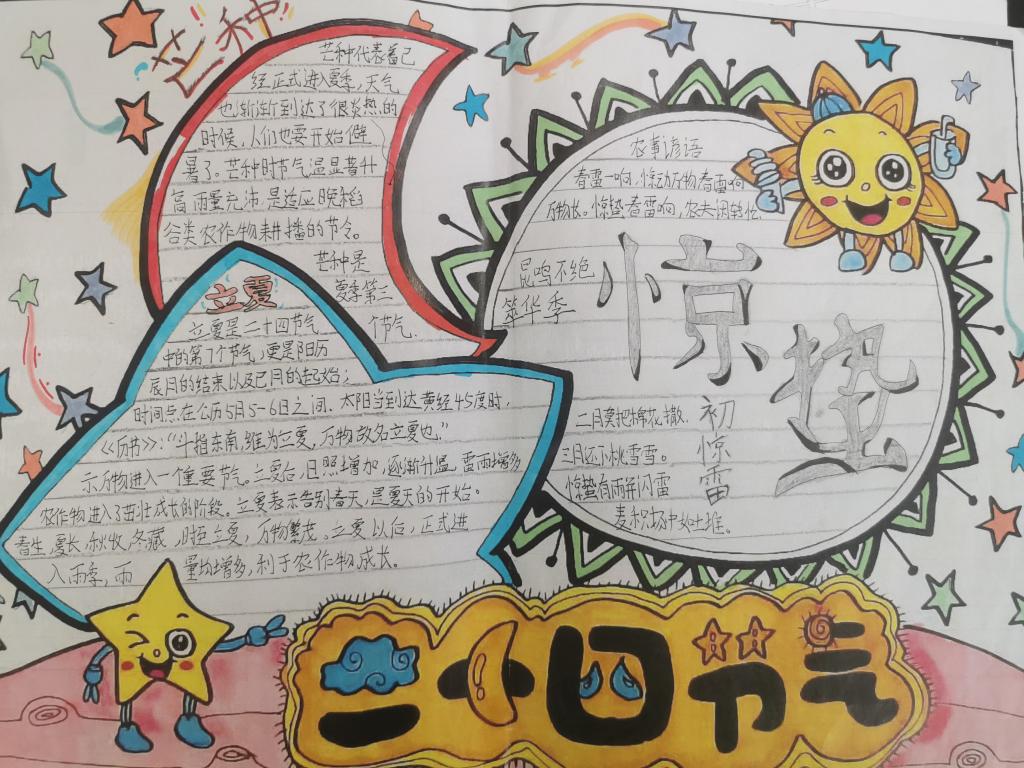 芒种
芒种代表着已
经正式进入夏季，天气
也渐渐到达了很炎热的
时候，人们也要开始避
暑了。芒种时节气温显著升
高雨量充沛，是适应晚稻
谷类农作物耕播的节令。
芒种是
夏季第三
个节气.
立夏
立夏是二十四节气
中的第7个节气，更是阳历
辰月的结束以及已月的起始；
时间点在公历5月5-6日之间．太阳当到达黄经45度时，
《历书》："斗指东南，维为立夏，万物故名立夏也."
示万物进入一个重要节气。立夏后，日照增加，逐渐升温，雷雨增多
农作物进入了茁壮成长的阶段。立夏表示告别春天，是夏天的开始。
春生，夏长，秋收，冬藏，时至立夏，万物繁茂。立夏以后，正式进
入雨季，雨量均增多，利于农作物成长。
农事谚语
春雷一响，惊动万物春雷响
万物长。惊蛰春雷响，农夫闲转忙.
昆鸣不绝
笨华季
惊蛰
二月莫把棉花撒.
三月还小秋雪雪。
惊蛰有雨并闪雷
麦积场中如土堆。
初惊雷
二十四节气